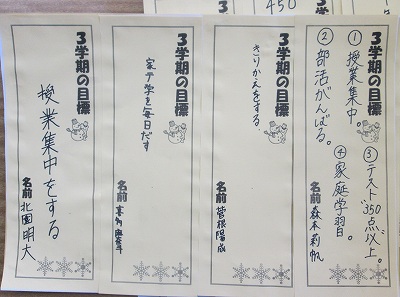 450
3学期の目標
①授業集中。
②部活がんばる。
③テスト350点以上。
④家庭学習。
名前 森本莉帆
3学期の目標
きりかえをする。
名前 菅根陽成
3学期の目標
家テ学を毎日だす
名前
3学期の目標
授業集中をする
名前 北園明大